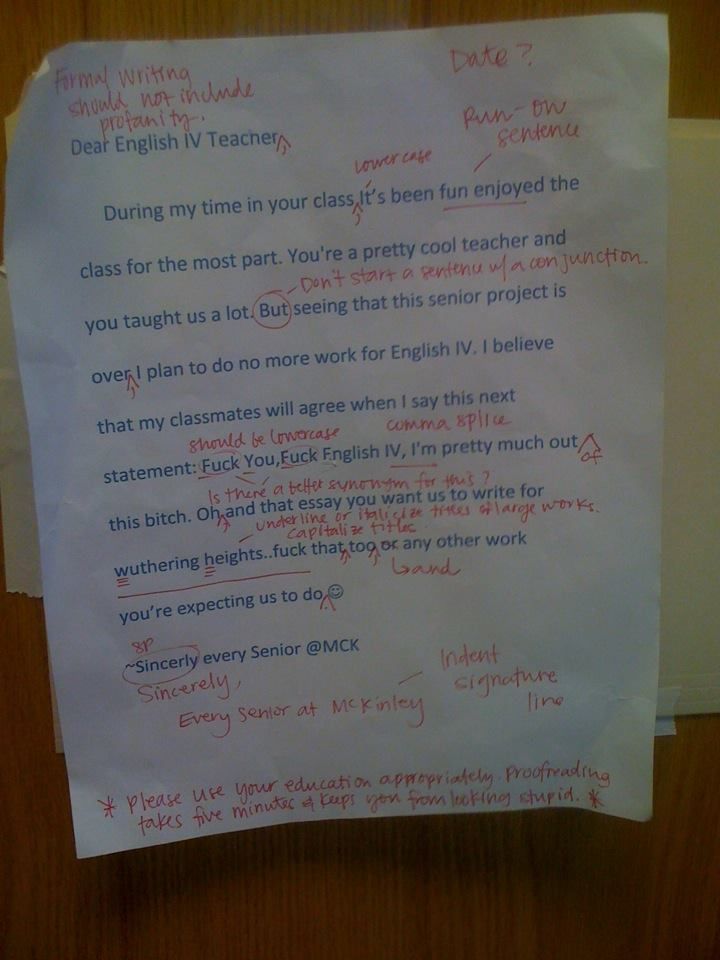 Formal writing
should not include
profanity.
Date?
Run-on
sentence
Dear English IV Teacher,
lowercase
During my time in your class, It's been fun enjoyed the
class for the most part. You're a pretty cool teacher and
Don't start a sentence w/ a conjunction.
you taught us a lot. But seeing that this senior project is
over, I plan to do no more work for English IV. I believe
that my classmates will agree when I say this next
should be lowercase
comma splice
statement: Fuck You,Fuck English IV, I'm pretty much out
of
Is there a better synonym for this?
this bitch. Oh, and that essay you want us to write for
underline or italicize titles of large works.
capitalize titles
wuthering heights..fuck that, too, or any other work
↳and
you're expecting us to do. ☺
sp
~Sincerly every Senior @MCK
Sincerely,
Every Senior at McKinley
Indent
signature
line
* Please use your education appropriately. Proofreading
takes five minutes & keeps you from looking stupid. *